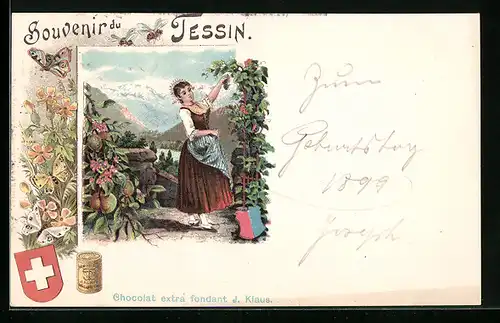 Souvenir du TESSIN.
Zum
Geburtstag
1899
Joseph
Chocolat extra fondant J. Klaus.